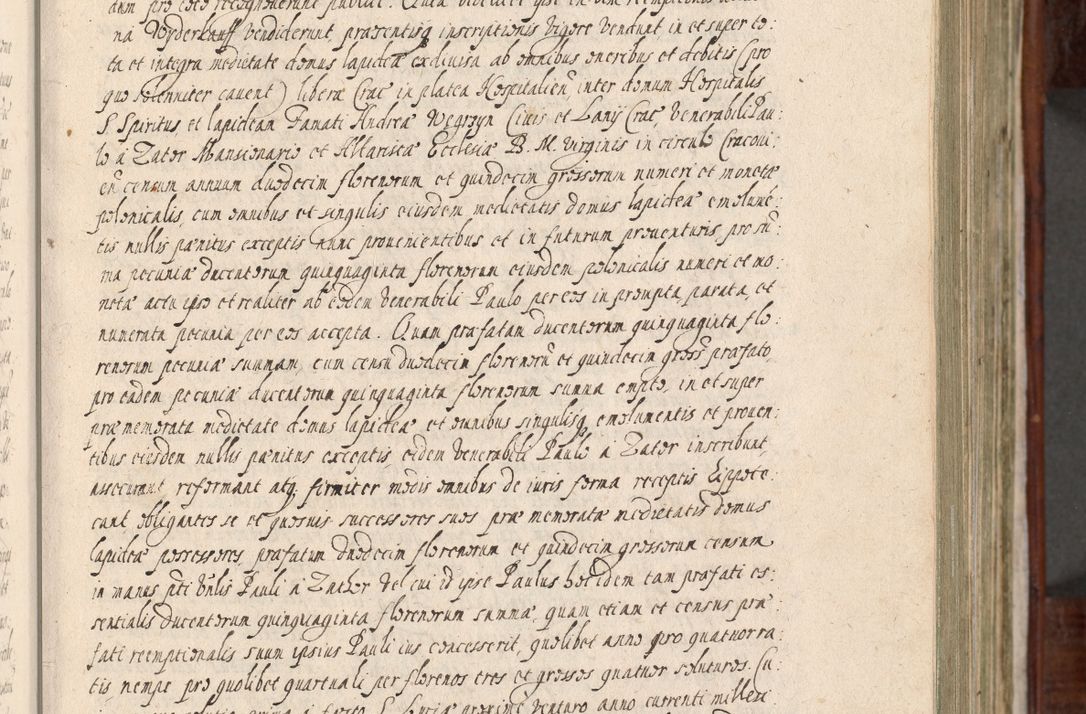 na Wyderkauff vendiderunt, præsentisq inscriptionis vigore vendunt in et super to:
ta et integra medietate domus lapideæ exdivisa ab omnibus oneribus et debitis (pro
quo solenniter cavent) libera Crac in platea Hospitalien, inter domum Hospitalis
S. Spiritus, et lapideam Famati Andreæ Węgrzyn Civis et Lanij Crac, Venerabili Pau:
lo à Zator Mansionario et Altaristæ Ecclesiæ B. M. Virginis in circulo Cracovi:
en censum annuum duodecim florenorum et quindecim grossorum numeri et monetæ
polonicalis, cum omnibus et singulis eiusdem medietatis domus lapideæ emolume:
tis nullis pænitus exceptis nunc provenientibus et in futurum proventuris, pro sū:
ma pecuniæ ducentorum quinquaginta florenorum eiusdem polonicalis numeri et mo:
netæ actu ipso et realiter ab eodem Venerabili Paulo per eos in prompta, parata, et
numerata pecunia per eos accepta. Quam præfatam ducentorum quinquaginta flo:
renorum pecuniæ summam, cum censu duodecim florenorū et quindecim gross præfato,
pro eadem pecuniæ ducentorum quinquaginta florenorum summa empto, in et super
præmemorata medietate domus lapideæ et omnibus singulisq emolumentis et proven
tibus eiusdem nullis pænitus exceptis, eidem Venerabili Paulo à Zator inscribunt,
assecurant reformant atq firmiter modis omnibus de iuris forma receptis Hippote:
cant, obligantes se et quosvis successores suos præmemoratæ medietatis domus
lapideæ possessores, præfatum duodecim florenorum et quindecim grossorum censum
in manus pti Vnlis Pauli à Zathor vel cui id ipse Paulus hoc idem tam præfati es:
sentialis ducentorum quinquaginta florenorum summæ, quam etiam et census præ:
fati reemptionalis suum ipsius Pauli ius concesserit, quolibet anno pro quatuor ra:
tis nempe pro quolibet quartuali per florenos tres et grossos quatuor soluturos. Cu:
S. Luciæ proxime venturo anno currenti millesi: